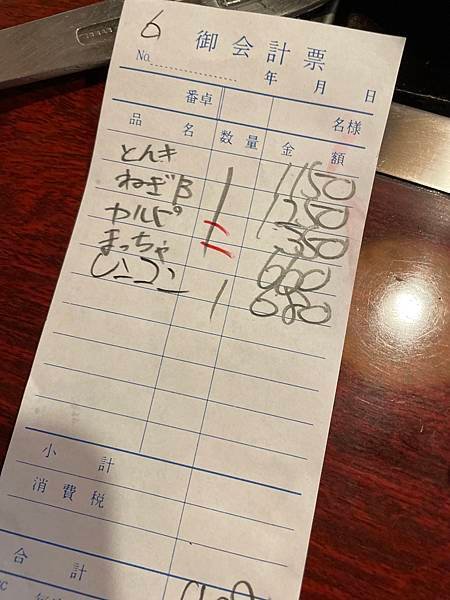 6 御会計票
No. 年 月 日
番卓 名様
品 名 数量 金 額
とんキ 1 1150
ねぎB 1 1250
カルピ 1 350
まっちゃ 660
レンコン 1 680
小 計
消費税
合 計